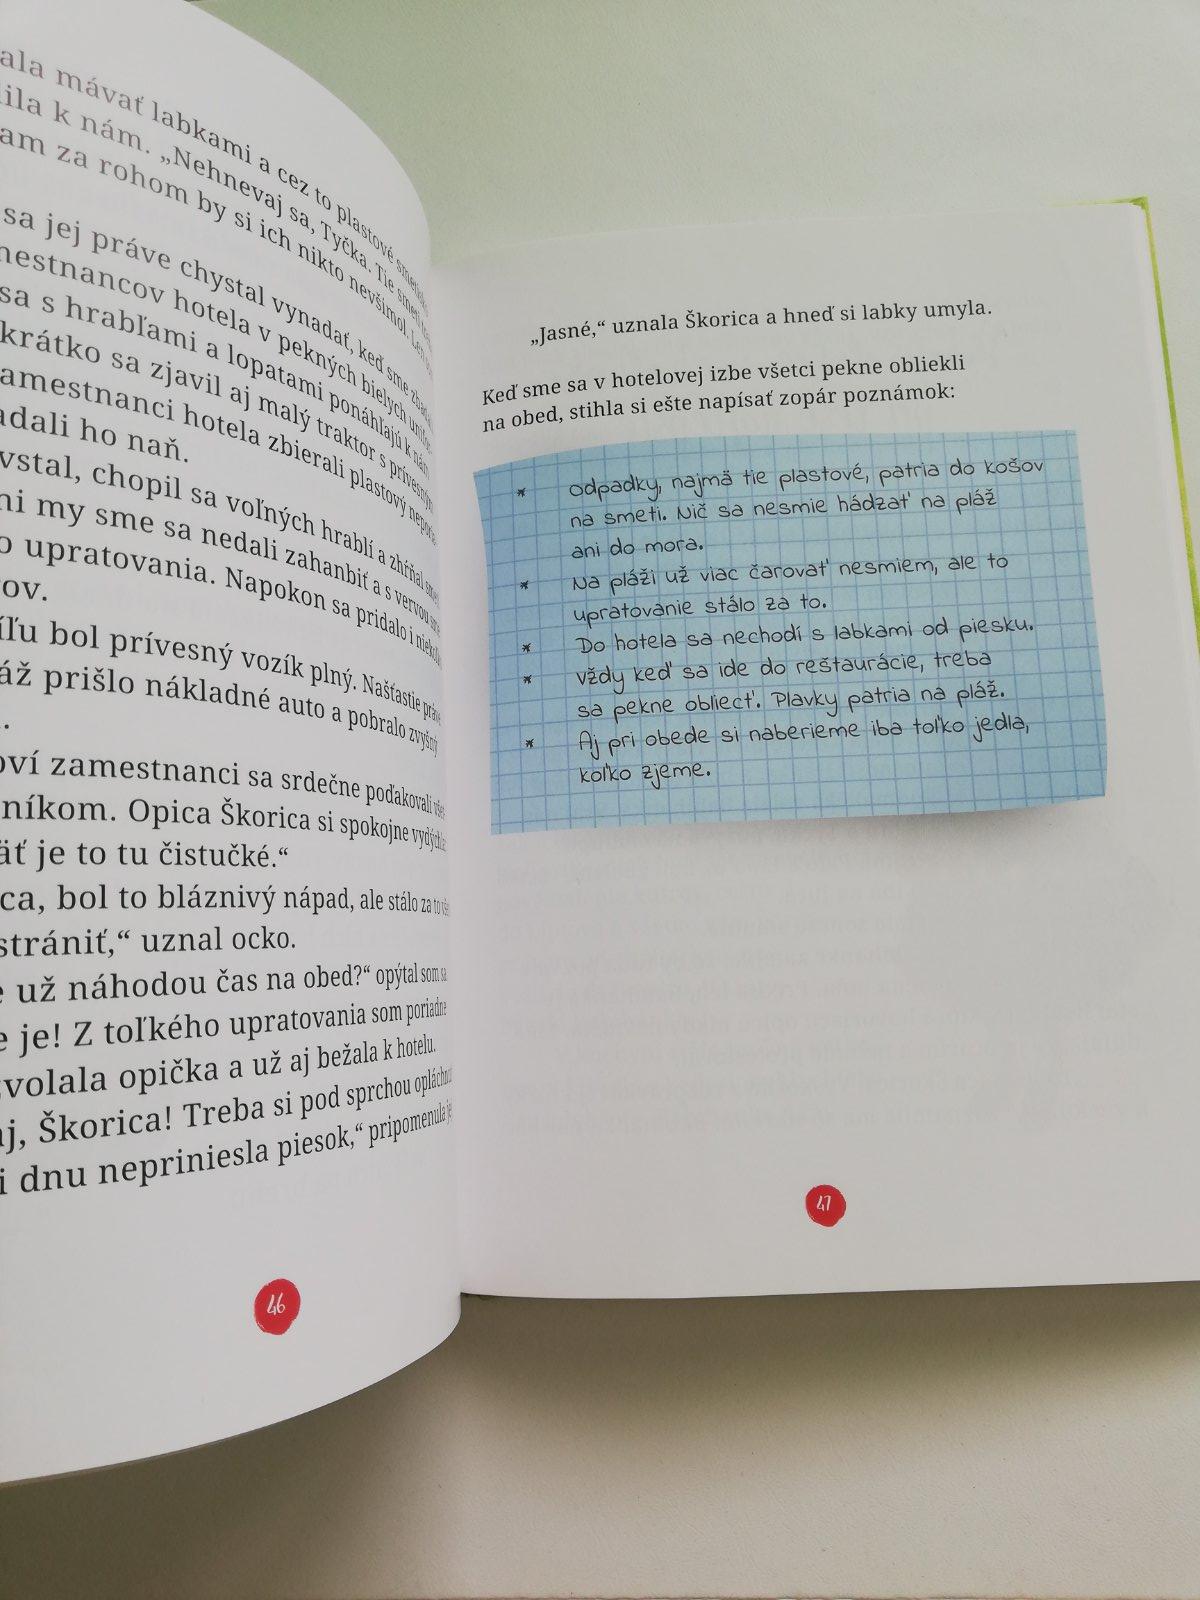 mávať labkami a cez to plastové
k nám. „Nehnevaj sa, Tyčka. Tie smeti
za rohom by si ich nikto nevšimol.
sa jej práve chystal vynadať, keď sme
hotela v pekných bielych
sa s hrabľami a lopatami ponáhľajú k nám
krátko sa zjavil aj malý traktor s prívesným
zamestnanci hotela zbierali plastový
ho naň.
vstal, chopil sa voľných hrablí a zhŕňal
my sme sa nedali zahanbiť a s vervou sme
upratovania. Napokon sa pridalo i
bol prívesný vozík plný. Našťastie práve
prišlo nákladné auto a pobralo zvyšný
zamestnanci sa srdečne poďakovali
Opica Škorica si spokojne vydýchla
je to tu čistučké.“
bol to bláznivý nápad, ale stálo za to
uznal ocko.
už náhodou čas na obed?“ opýtal som sa
je! Z toľkého upratovania som poriadne
opička a už aj bežala k hotelu.
Škorica! Treba si pod sprchou
dnu nepriniesla piesok,“ pripomenula jej
46
„Jasné,“ uznala Škorica a hneď si labky umyla.
Keď sme sa v hotelovej izbe všetci pekne obliekli
na obed, stihla si ešte napísať zopár poznámok:
* Odpadky, najmä tie plastové, patria do košov
na smeti. Nič sa nesmie hádzať na pláž
ani do mora.
* Na pláži už viac čarovať nesmiem, ale to
upratovanie stálo za to.
* Do hotela sa nechodí s labkami od piesku.
* Vždy keď sa ide do reštaurácie, treba
sa pekne obliecť. Plavky patria na pláž.
* Aj pri obede si naberieme iba toľko jedla,
koľko zjeme.
47